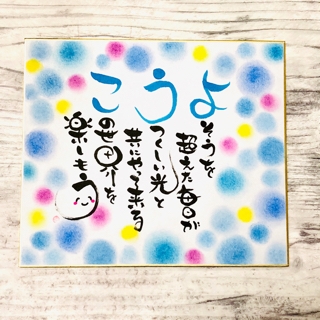 よそうを
超えた毎日が
うつくしい光と
共にやって来る
この世界を
楽しもう